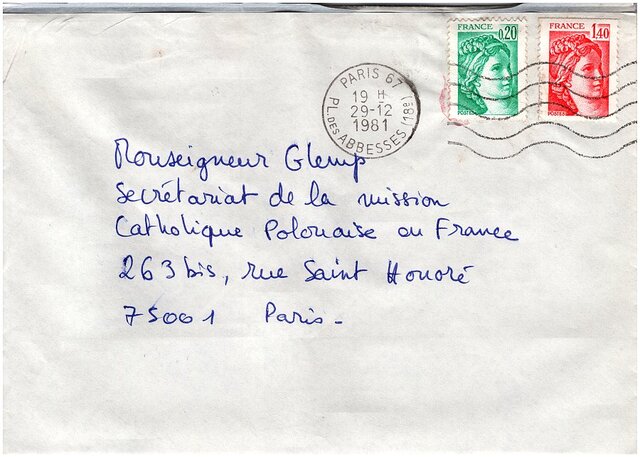 FRANCE 0,20
POSTES
FRANCE 1,40
POSTES
PARIS 67
19 H
29-12
1981
PL. DES ABBESSES (18e)
Monseigneur Glemp
Secrétariat de la mission
Catholique Polonaise en France
263 bis, rue Saint Honoré
75001 Paris-